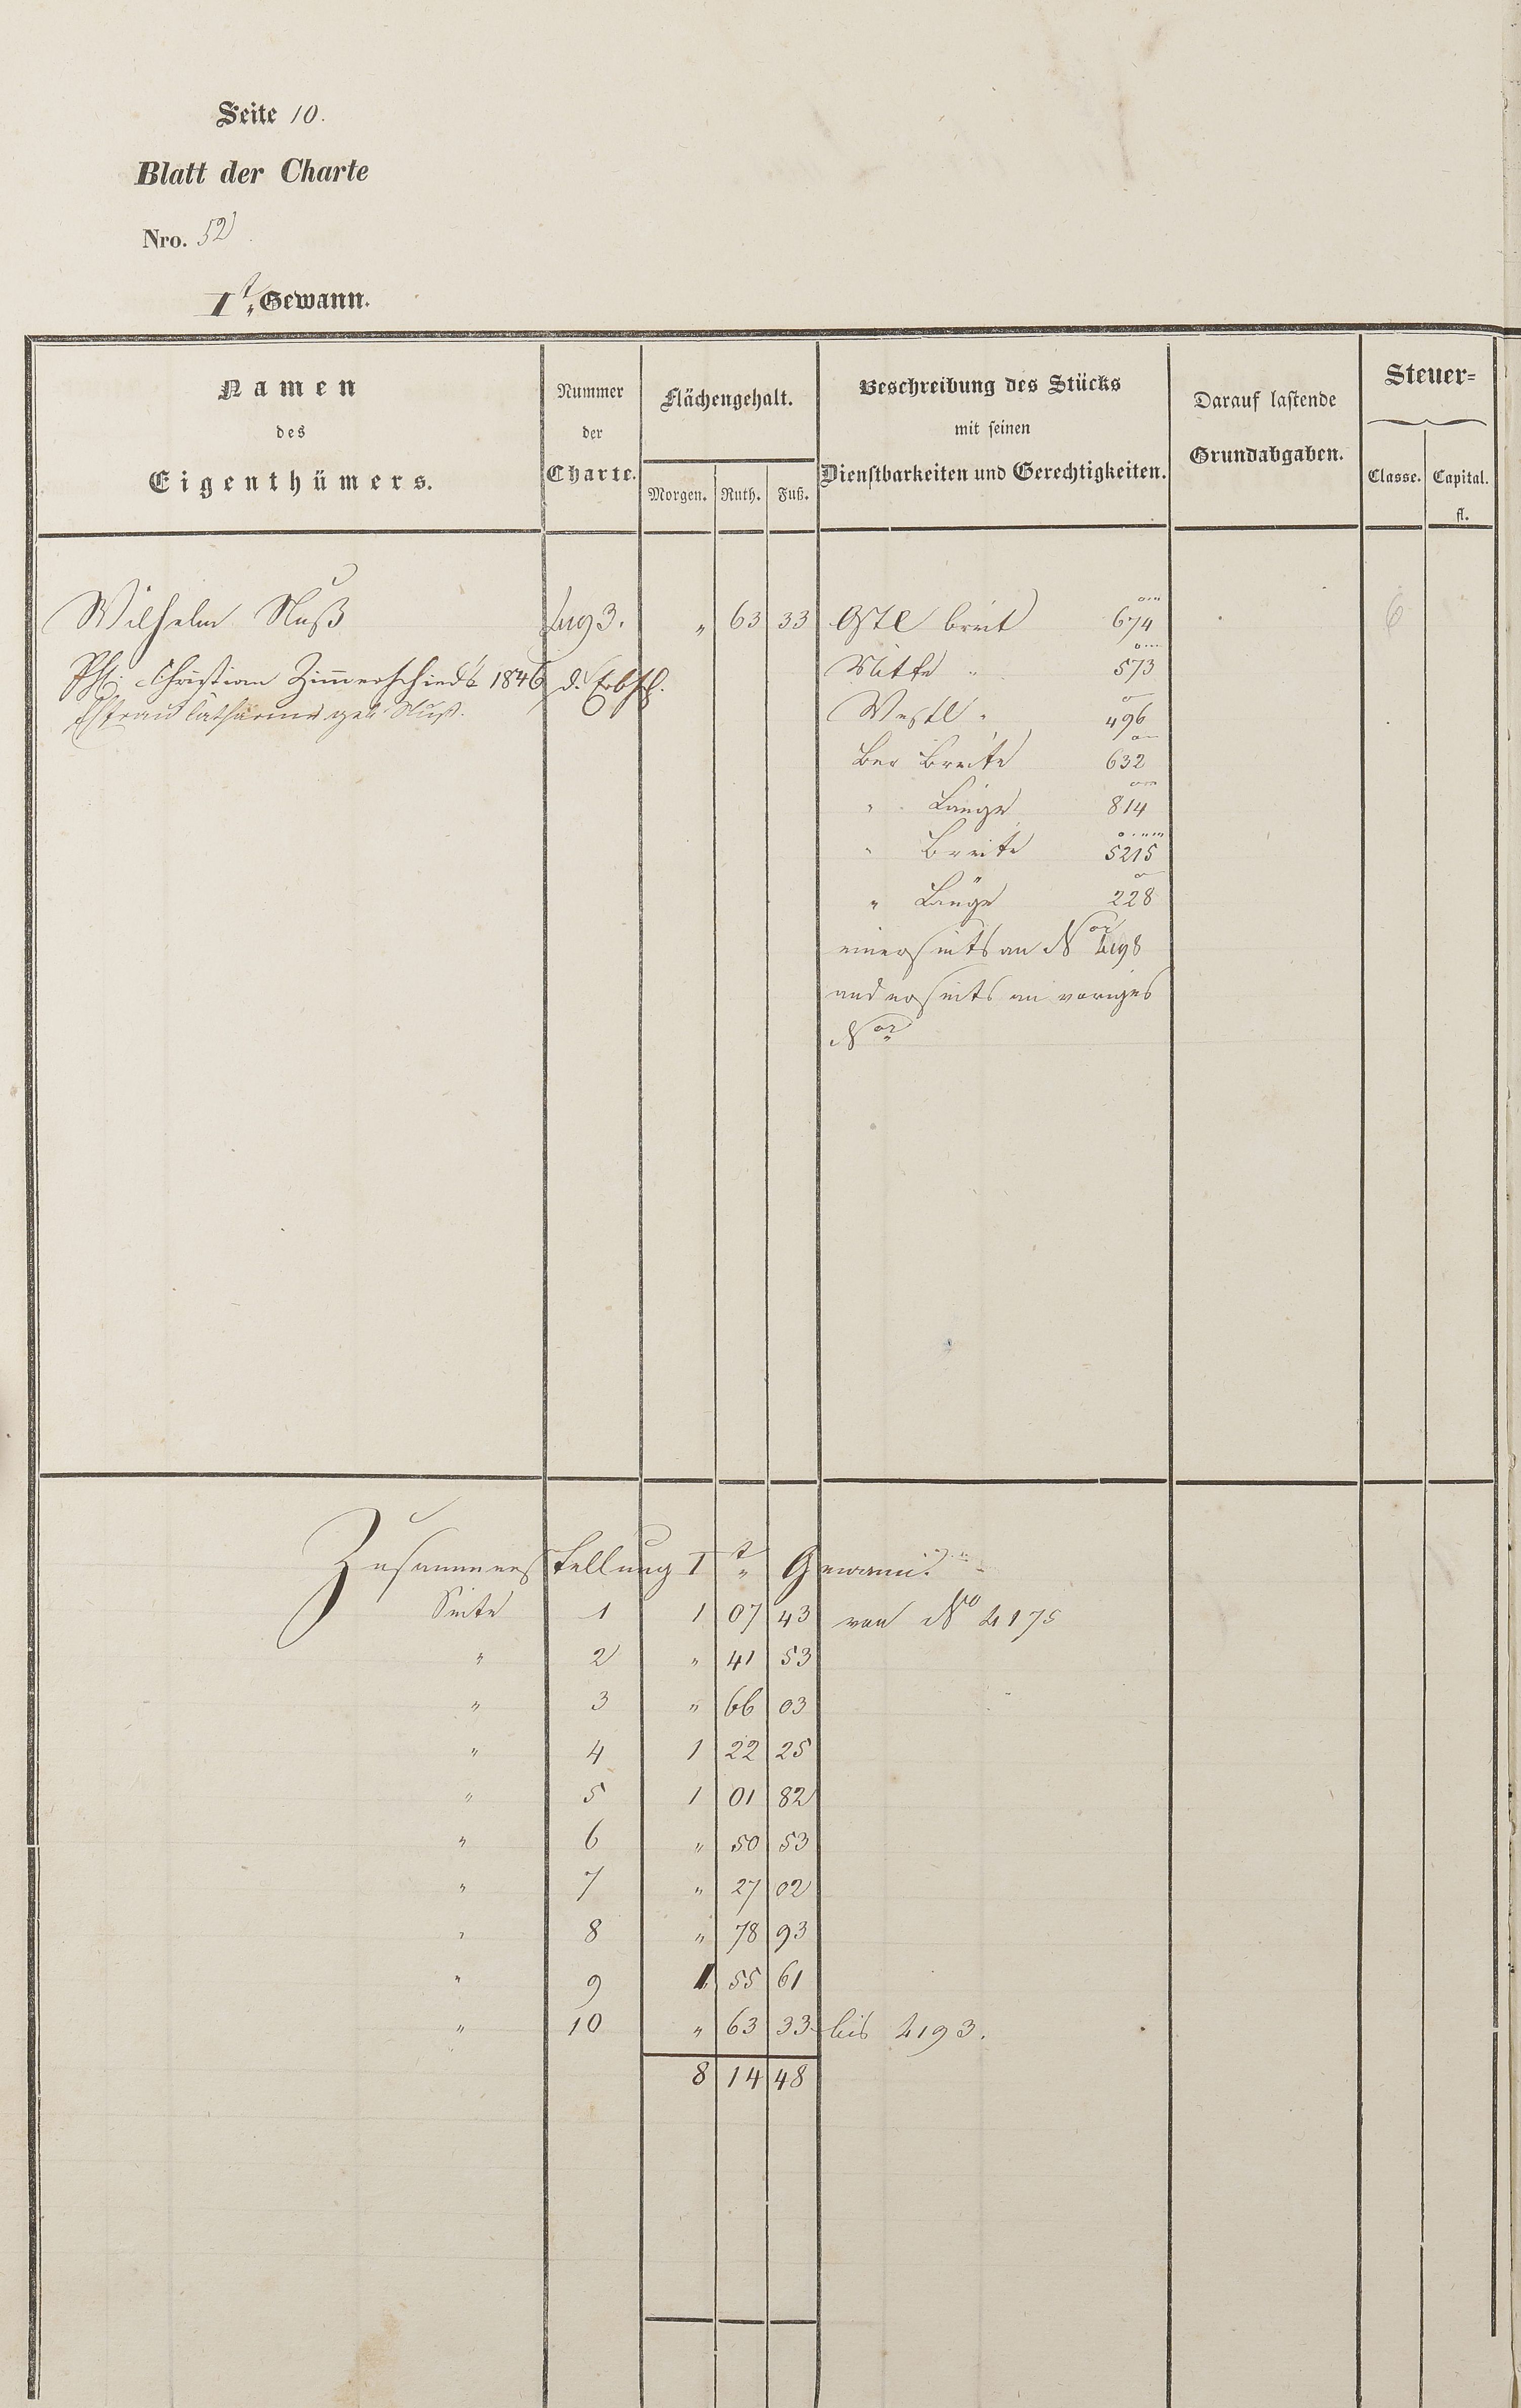 Seite 10.
Blatt der Charte
Nro. 52
I.t Gewann.
Namen des Eigenthümers.
Nummer der Charte.
Flächengehalt.
Morgen. Ruth. Fuß.
Beschreibung des Stücks mit seinen Dienstbarkeiten und Gerechtigkeiten.
Darauf lastende Grundabgaben.
Steuer=
Classe. Capital. fl.
Wilhelm Nuß 4193. " 63 33 Östl breit 674 6
Phl. Christian Zimmerschied's 1846 d. Erbsch. Mitte " 573
Ehfrau Catharine geb. Nuß. Westl " 496
Ber Breite 632
" Länge 814
" Breite 5215
" Länge 228
einerseits an No 4198
anderseits an voriges
No
Zusammenstellung I t Gewann.
Seite 1 1 07 43 von No 4175
" 2 " 41 53
" 3 " 66 03
" 4 1 22 25
" 5 1 01 82
" 6 " 50 53
" 7 " 27 02
" 8 " 78 93
" 9 1 55 61
" 10 " 63 33 bis 4193.
8 14 48